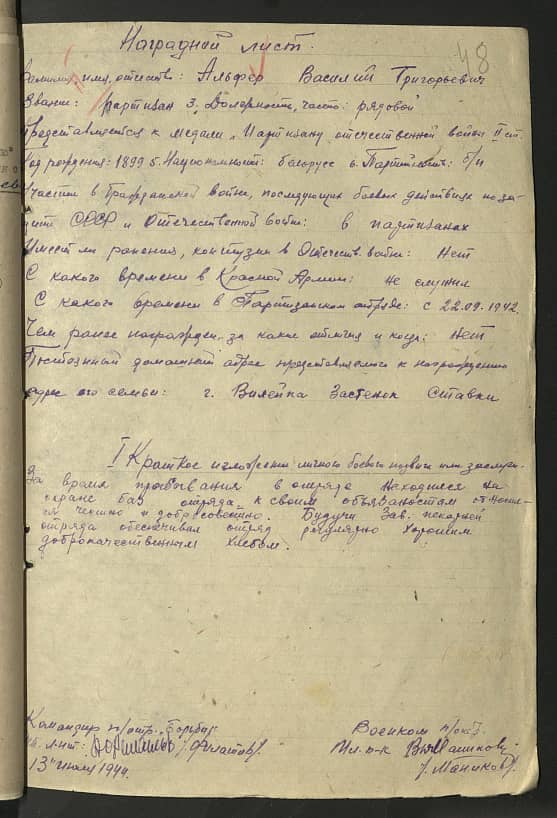 48
Наградной лист.
Фамилия, имя, отчество: Альфер Василий Григорьевич
Звание: партизан 3. Должность, часть: рядовой
Представляется к медали „Партизану отечественной войны" II ст.
Год рождения: 1899 5. Национальность: белорус 6. Партийность: б/п
Участие в Гражданской войне, последующих боевых действиях по за-
щите СССР и Отечественной войне: в партизанах
Имеет ли ранения, контузии в Отечеств. войне: Нет
С какого времени в Красной Армии: не служил
С какого времени в Партизанском отряде: с 22.09.1942.
Чем ранее награжден, за какие отличия и когда: Нет
Постоянный домашний адрес представляемого к награждению
адрес его семьи: г. Вилейка Застенок Ставки
I Краткое изложение личного боевого подвига или заслуги.
За время пребывания в отряде находился на
охране баз отряда, к своим обязаностям относил-
ся честно и добросовестно. Будучи Зав. пекарней
отряда обеспечивал отряд регулярно хорошим
доброкачественным хлебом.
Командир п/отр. Борьба Военком п/отр.
Филатов
13 июля 1944.